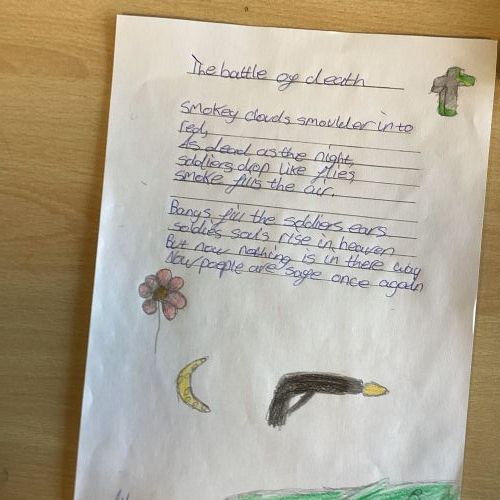 The battle og death
Smokey clouds smoulder into
red,
As dead as the night,
soldiers drop like flies,
smoke fills the air.
Bangs fill the soldiers ears
soldies souls rise in heaven
But now nothing is in there way
Now poeple are sage once again